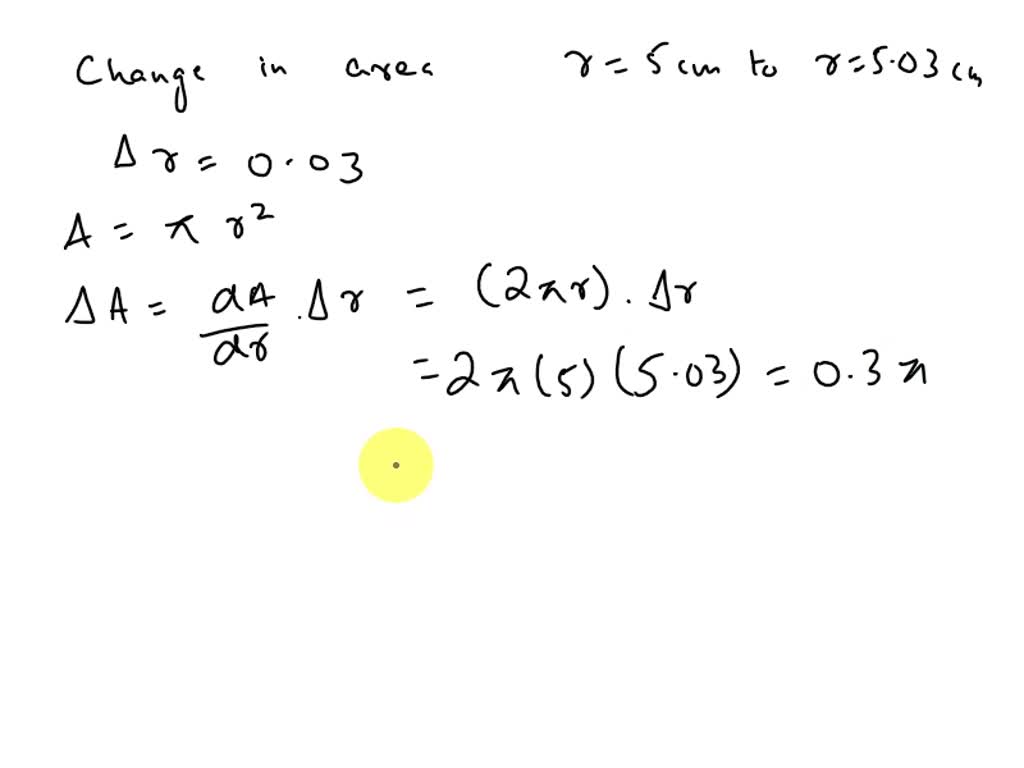 Change in area r = 5 cm to r = 5.03 cm
Δr = 0.03
A = π r²
ΔA = dA/dr . Δr = (2πr) . Δr
= 2π(5)(5.03) = 0.3π